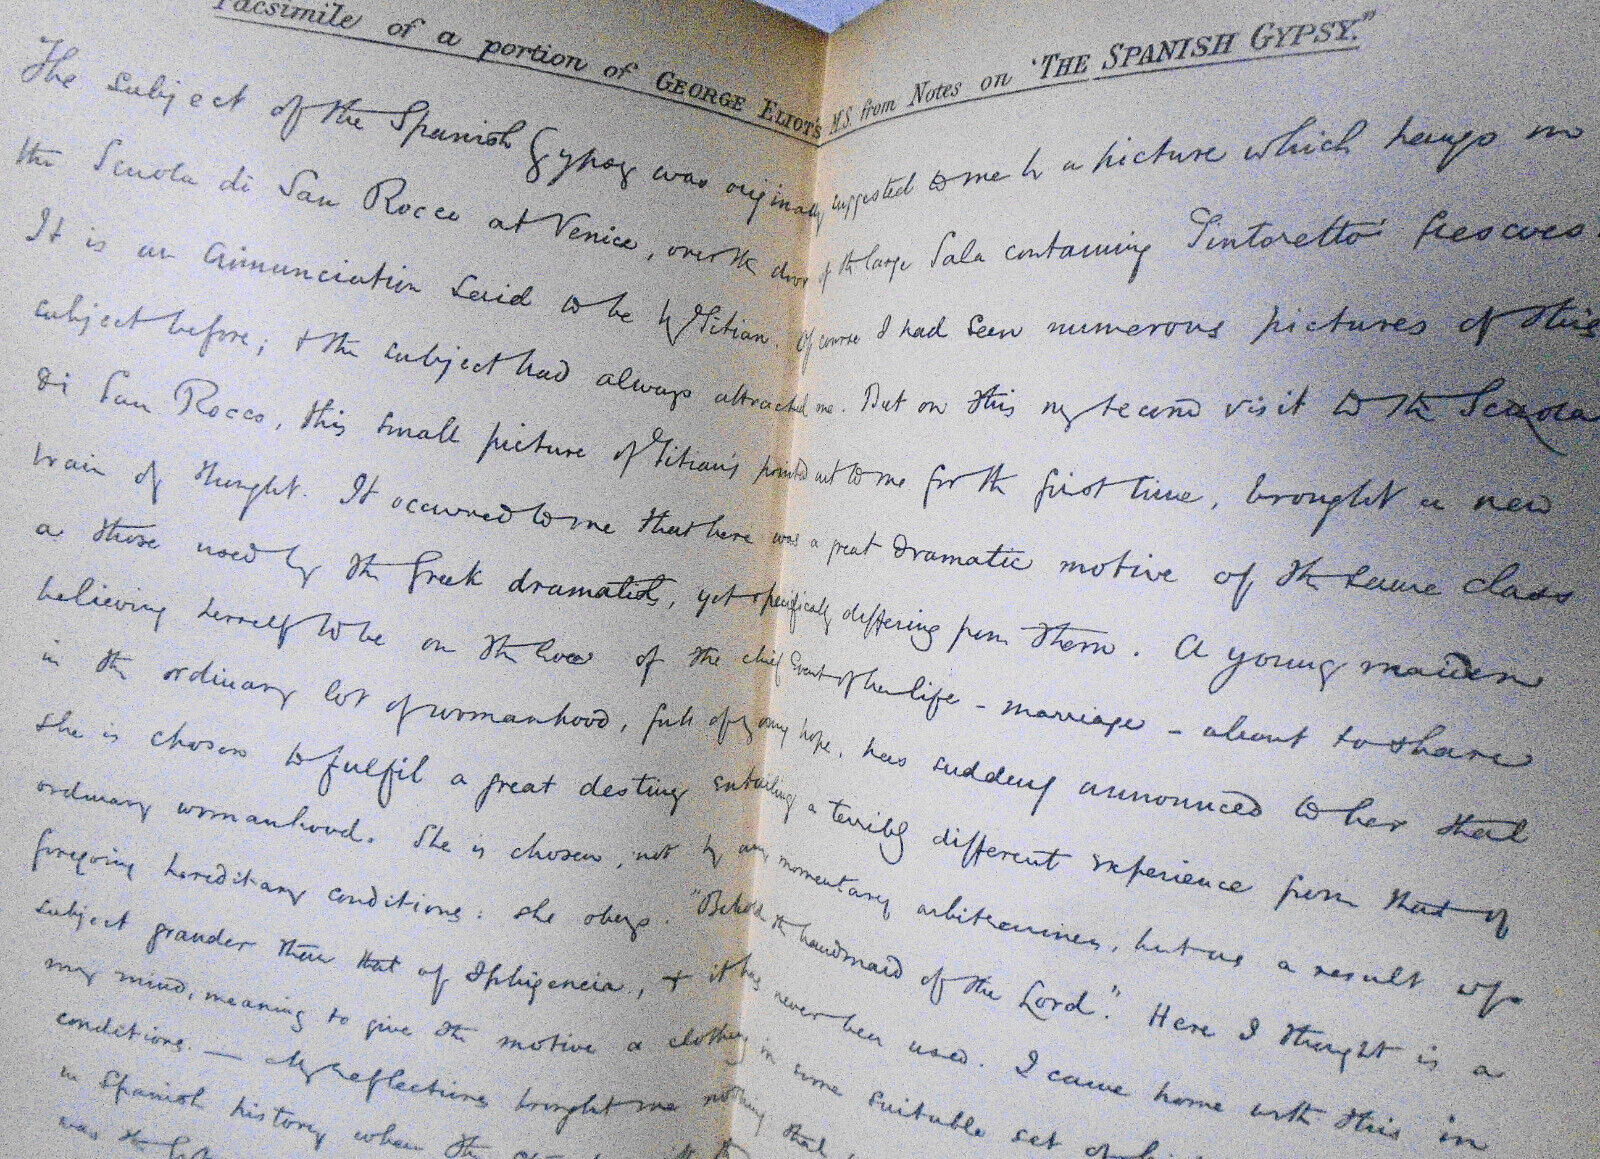 Facsimile of a portion of GEORGE ELIOT'S M.S. from Notes on "THE SPANISH GYPSY."
The subject of the Spanish Gypsy was originally suggested to me by a picture which hangs in
the Scuola di San Rocco at Venice, over the door of the large Sala containing Tintoretto's frescoes.
It is an Annunciation said to be by Titian. Of course I had seen numerous pictures of this
subject before; & the subject had always attracted me. But on this my second visit to the Scuola
di San Rocco, this small picture of Titian's pointed out to me for the first time, brought a new
train of thought. It occurred to me that here was a great dramatic motive of the same class
as those used by the Greek dramatists, yet specifically differing from them. A young maiden
believing herself to be on the eve of the chief event of her life – marriage – about to share
in the ordinary lot of womanhood, full of young hope, has suddenly announced to her that
she is chosen to fulfil a great destiny entailing a terribly different experience from that of
ordinary womanhood. She is chosen, not by any momentary arbitrariness, but as a result of
foregoing hereditary conditions: she obeys. "Behold the handmaid of the Lord." Here I thought is a
subject grander than that of Iphigencia, & it has never been used. I came home with this in
my mind, meaning to give the motive a clothing in some suitable set of
conditions. — My reflections brought me nothing that
in Spanish history when the
was the